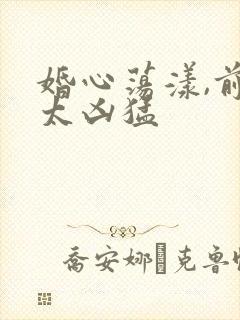 婚心荡漾,前
太凶猛
乔安娜 克鲁